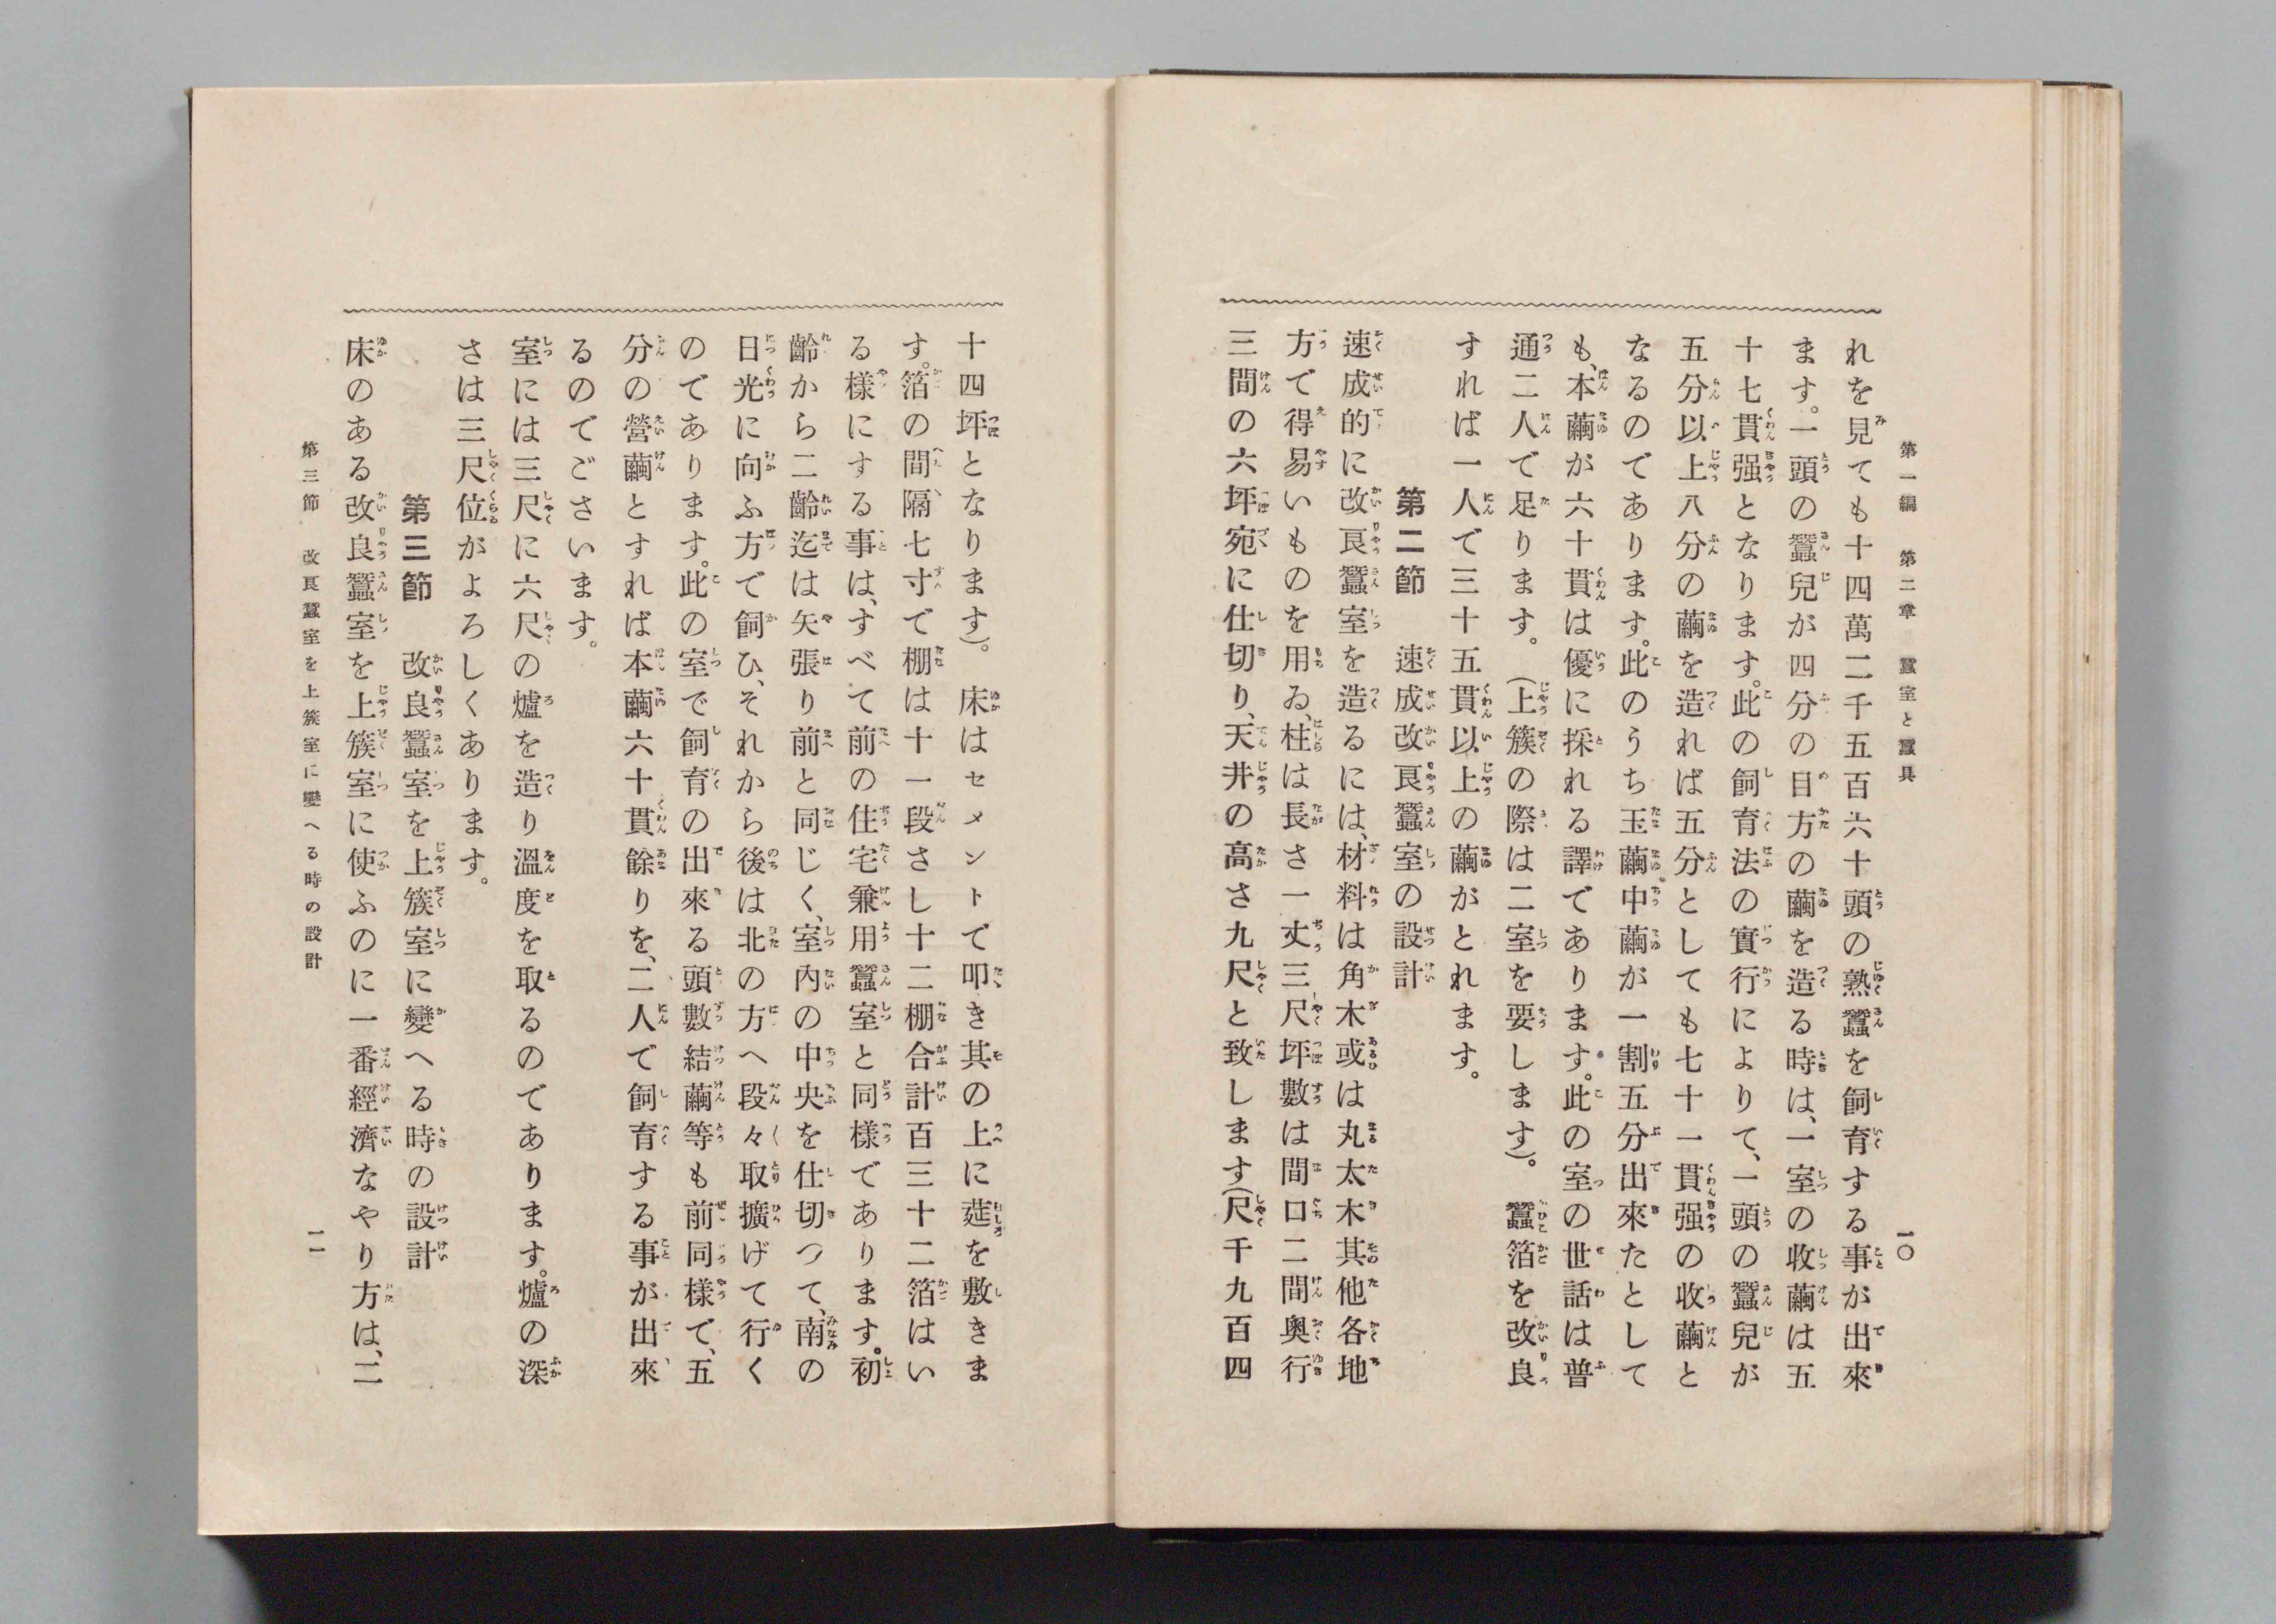 第一編　第二章　蠶室と蠶具
一〇
れを見ても十四萬二千五百六十頭の熟蠶を飼育する事が出來
ます。一頭の蠶兒が四分の目方の繭を造る時は、一室の收繭は五
十七貫强となります。此の飼育法の實行によりて、一頭の蠶兒が
五分以上八分の繭を造れば五分としても七十一貫强の收繭と
なるのであります。此のうち玉繭中繭が一割五分出來たとして
も、本繭が六十貫は優に採れる譯であります。此の室の世話は普
通二人で足ります。(上簇の際は二室を要します)。　蠶箔を改良
すれば一人で三十五貫以上の繭がとれます。
第二節　速成改良蠶室の設計
速成的に改良蠶室を造るには、材料は角木或は丸太木其他各地
方で得易いものを用ゐ、柱は長さ一丈三尺坪數は間口二間奧行
三間の六坪宛に仕切り、天井の高さ九尺と致します(尺千九百四
十四坪となります)。　床はセメントで叩き其の上に莚を敷きま
す。箔の間隔七寸で棚は十一段さし十二棚合計百三十二箔はい
る樣にする事は、すべて前の住宅兼用蠶室と同樣であります。初
齡から二齡迄は矢張り前と同じく、室內の中央を仕切つて、南の
日光に向ふ方で飼ひ、それから後は北の方へ段々取擴げて行く
のであります。此の室で飼育の出來る頭數結繭等も前同樣で、五
分の營繭とすれば本繭六十貫餘りを、二人で飼育する事が出來
るのでございます。
室には三尺に六尺の爐を造り溫度を取るのであります。爐の深
さは三尺位がよろしくあります。
第三節　改良蠶室を上簇室に變へる時の設計
床のある改良蠶室を上簇室に使ふのに一番經濟なやり方は、二
第三節　改良蠶室を上簇室に變へる時の設計
一一